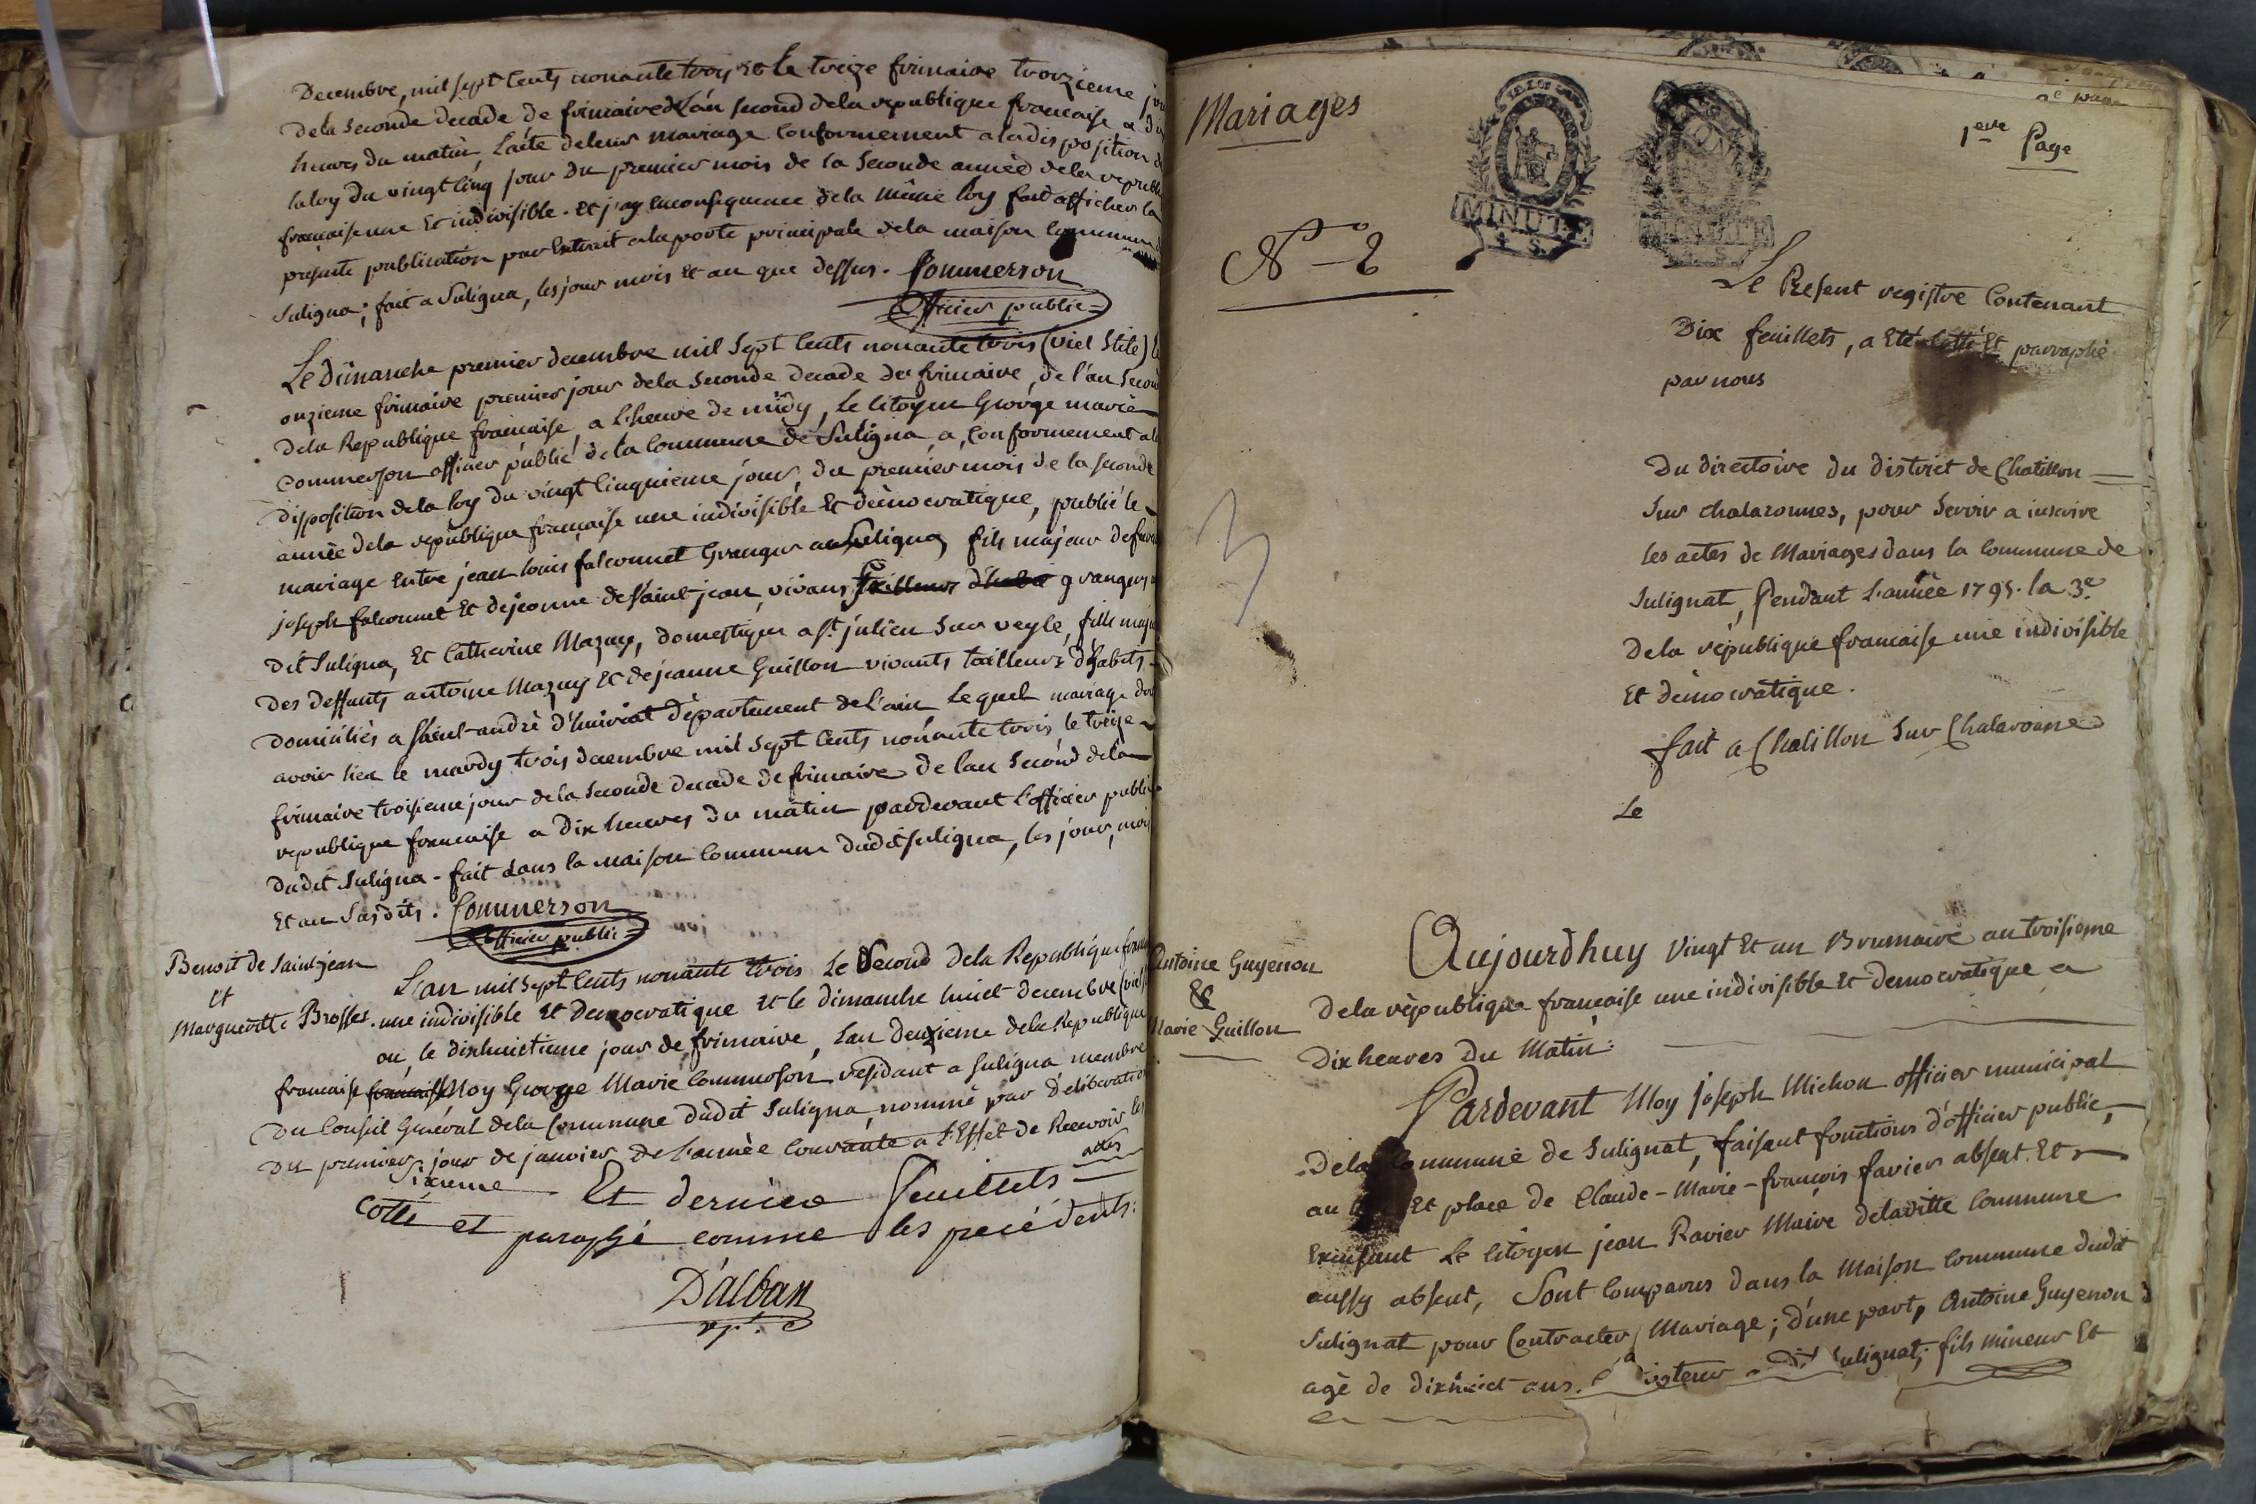 Decembre, mil sept cents nonante trois et le treize frimaire troizieme jou
de la seconde decade de frimaire de l'an second de la republique francaise a dix
heures du matin, l'acte de leur mariage conformement a la disposition de
la loy du vingt cinq jour du premier mois de la seconde année de la republi
francaise une et indivisible. et j'ay en consequence de la même loy fait afficher la
presente publication par extrait a la porte principale de la maison commune d
Suligna; fait a Suligna, les jour mois et an que dessus. Commerson
officier public
Le dimanche premier decembre mil sept cents nonante trois (viel stile) le
onzieme frimaire premier jour de la seconde decade de frimaire, de l'an second
de la Republique francaise a l'heure de midy, Le citoyen George marie
commerson officier public de la commune de Suligna, a, conformement a la
disposition de la loy du vingt cinquieme jour, du premier mois de la seconde
année de la republique française une indivisible et démocratique, publié le
mariage entre jean louis falconnet Granger au Suligna, fils majeur de feu
joseph falconnet et de jeanne de saint jean, vivans tailleurs d'habit grangers
dit Suligna, et Catherine Mazuy, domestique a st julien sur veyle, fille maje
des deffunts antoine Mazuy et de jeanne Guillon vivants tailleurs d'habits
domiciliés a saint-andré d'huiriat département de l'ain lequel mariage doi
avoir lieu le mardy trois decembre mil sept cents nonante trois le treize
frimaire troisieme jour de la seconde decade de frimaire de l'an second de la
republique francaise a dix heures du matin pardevant l'officier public
dudit Suligna - fait dans la maison commune dudit suligna, les jour, mois
et an susdits. Commerson
officier public
Benoit de Saint jean
et
Margueritte Brosses.
L'an mil sept cents nonante trois Le Second de la Republique fran
une indivisible et democratique et le dimanche huict decembre (viel
ou, le dixhuictieme jour de frimaire, L'an deuxieme de la Republique
francaise francaise Moy George Marie Commerson residant a Suligna membre
du Conseil Général de la Commune dudit Suligna nommé par déliberation
du premier jour de janvier de l'année courante a l'Effet de Recevoir les
actes
Sixieme Et dernier feuillets
cotté et paraphé comme les precédents:
D'alban
Mariages
1ere Page
N° 2
MINUTE
4. S.
MINUTE
Le Present registre Contenant
Dix feuillets, a eté cotté et parraphé
par nous
du directoire du district de Chatillon
sur chalaronnes, pour servir a inscrire
les actes de Mariages dans la commune de
Sulignat, pendant l'année 1795. la 3e
de la république francaise une indivisible
et démocratique.
fait a Chatillon sur Chalaronne
Le
Antoine Guyenon
&
Marie Guillon
Aujourdhuy vingt et un Brumaire an troisieme
de la république francaise une indivisible et democratique a
dix heures du Matin:
Pardevant Moy joseph Michon officier municipal
de la Commune de Sulignat, faisant fonctions d'officier public,
au et place de Claude-Marie-françois favier absent et
Le citoyen jean Ravier Maire de la ditte commune
aussy absent, Sont comparus dans la Maison commune dudit
Sulignat pour Contracter Mariage; d'une part, Antoine Guyenon
agé de dixhuict ans. Sulignat; fils mineur et